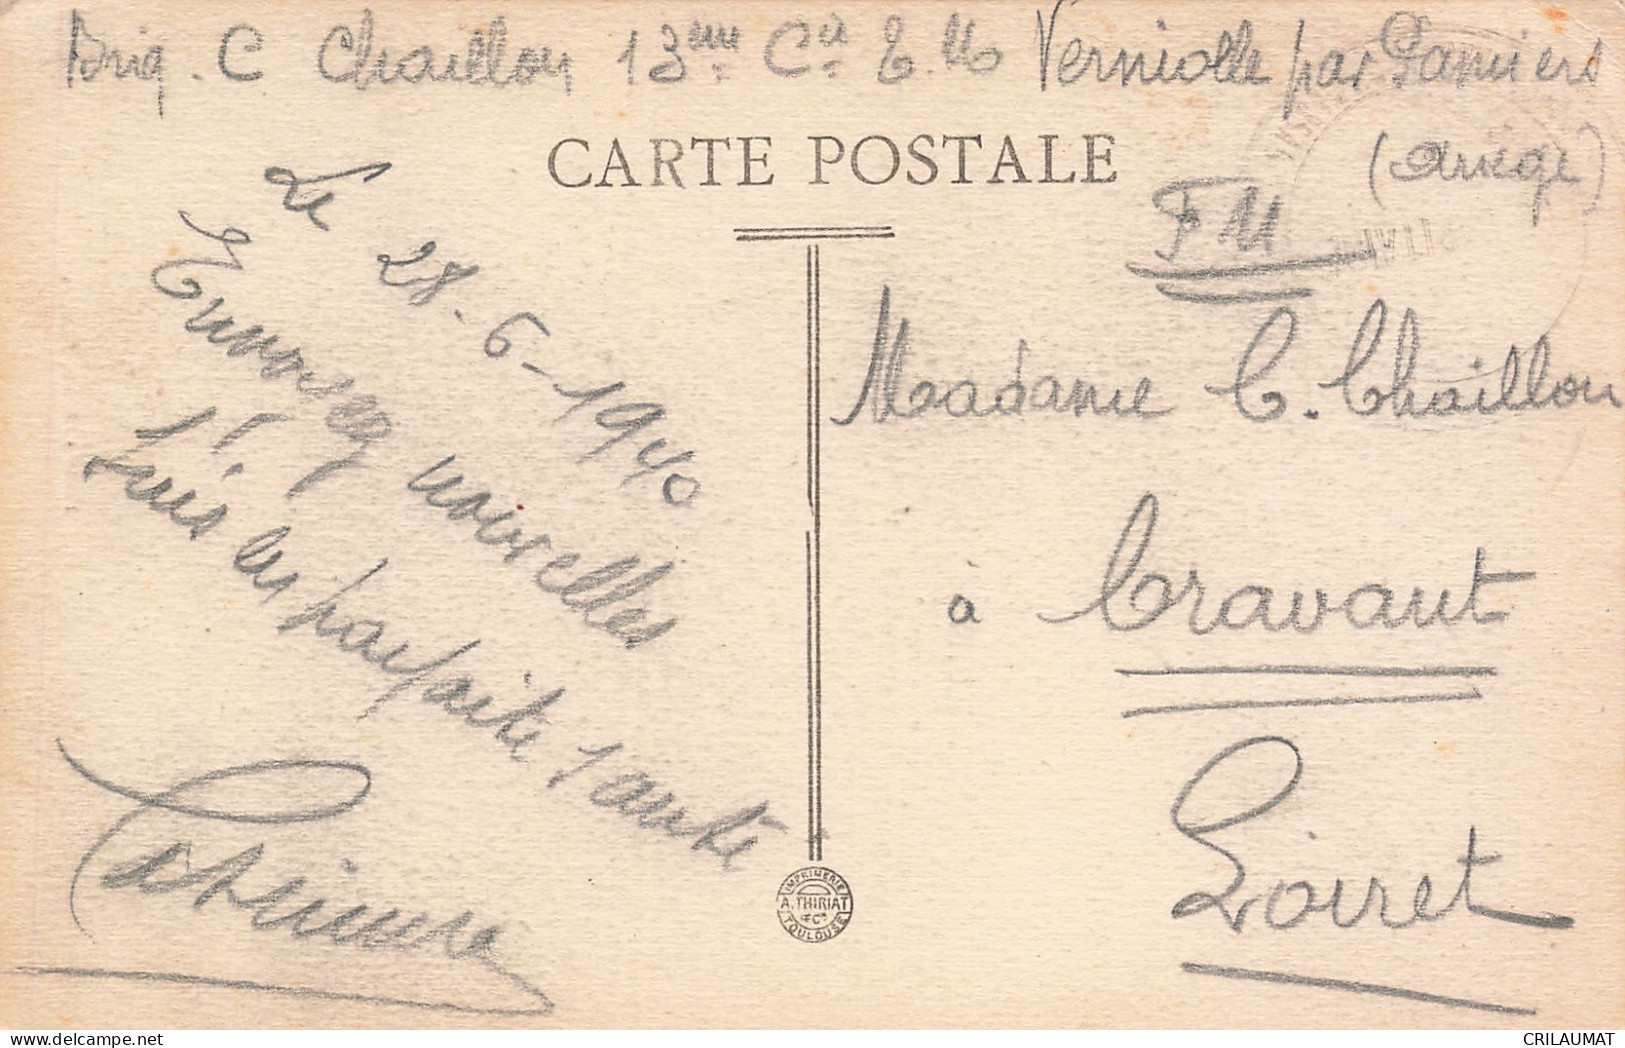 Brig. C Chaillou 13me Cie E.M Verniolle par Pamiers
(Ariège)
CARTE POSTALE
FM
Le 28-6-1940
Envoyez nouvelles
Suis en parfaite santé
Madame C. Chaillou
à Cravant
Loiret
IMPRIMERIE
A. THIRIAT
& Cie
TOULOUSE
CRILAUMAT